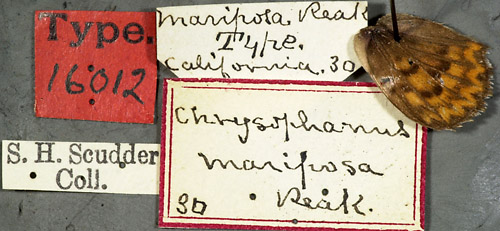 Type.
16012
mariposa Reak
Type.
California. 30
S. H. Scudder
Coll.
Chrysophanus
mariposa
Reak.
30